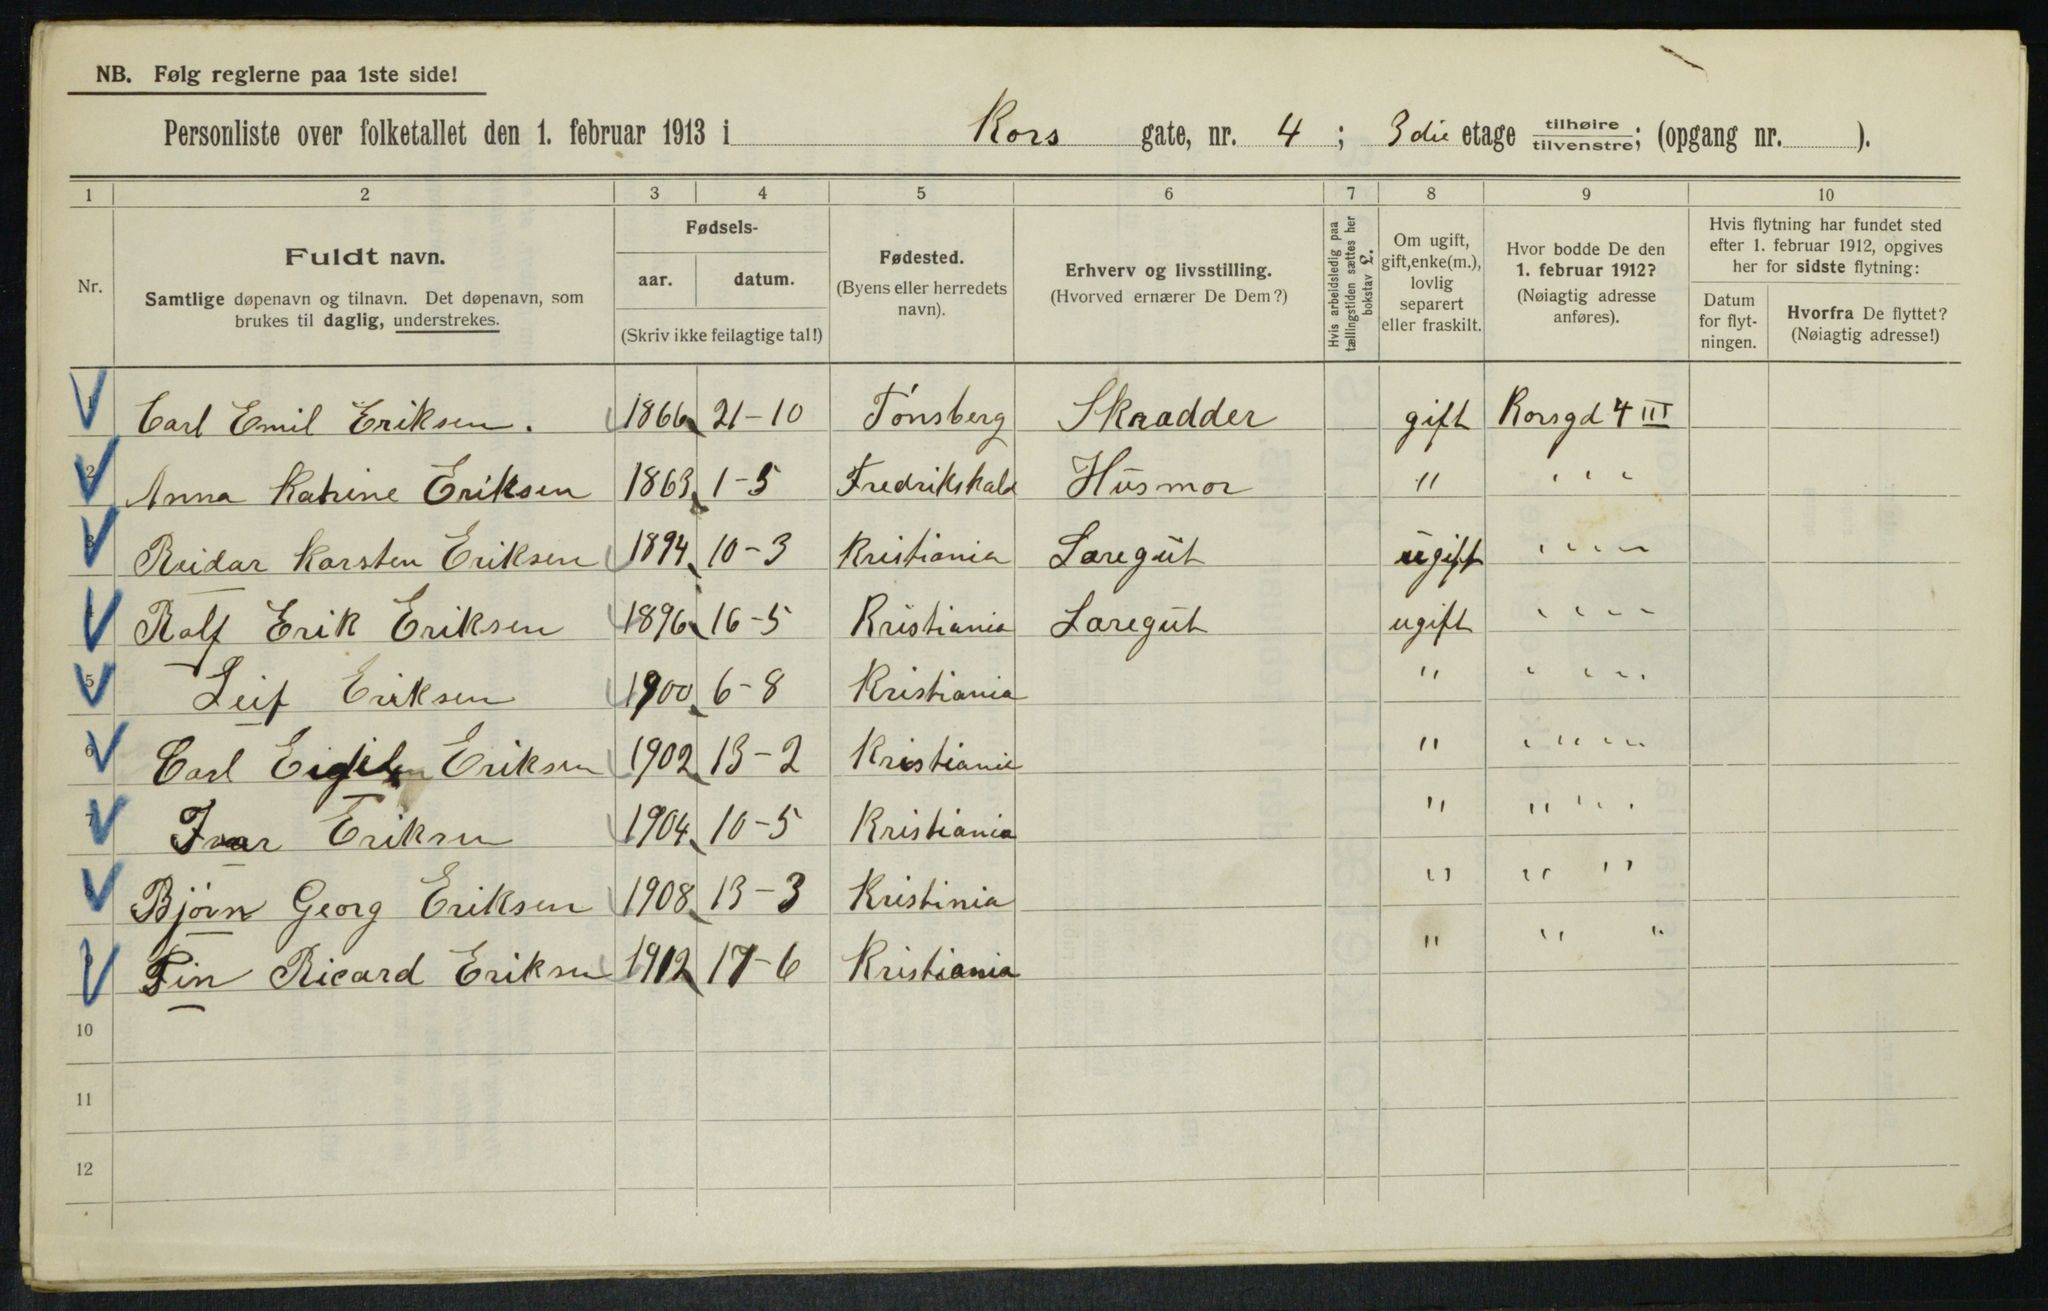 NB. Følg reglerne paa 1ste side!
Personliste over folketallet den 1. februar 1913 i Kors gate, nr. 4 ; 3die etage tilhøire tilvenstre; (opgang nr. ).
1 2 3 4 5 6 7 8 9 10
Nr.
Fuldt navn.
Samtlige døpenavn og tilnavn. Det døpenavn, som
brukes til daglig, understrekes.
Fødsels-
aar. datum.
(Skriv ikke feilagtige tal!)
Fødested.
(Byens eller herredets
navn).
Erhverv og livsstilling.
(Hvorved ernærer De Dem?)
Hvis arbeidsledig paa
tællingstiden sættes her
bokstav L.
Om ugift,
gift, enke(m.),
lovlig
separert
eller fraskilt.
Hvor bodde De den
1. februar 1912?
(Nøiagtig adresse
anføres).
Hvis flytning har fundet sted
efter 1. februar 1912, opgives
her for sidste flytning:
Datum
for flyt-
ningen.
Hvorfra De flyttet?
(Nøiagtig adresse!)
1 Carl Emil Eriksen. 1866 21-10 Tønsberg Skradder gift Korsgd 4 III
2 Anna Katrine Eriksen 1863 1-5 Fredrikshald Husmor " " " "
3 Reidar Karsten Eriksen 1894 10-3 Kristiania Læregut ugift " " "
4 Ralf Erik Eriksen 1896 16-5 Kristiania Læregut ugift " " "
5 Leif Eriksen 1900 6-8 Kristiania " " " "
6 Carl Eigil Eriksen 1902 13-2 Kristiania " " " "
7 Ivar Eriksen 1904 10-5 Kristiania " " " "
8 Bjørn Georg Eriksen 1908 13-3 Kristinia " " "
9 Fin Ricard Eriksen 1912 17-6 Kristiania " " "
10
11
12